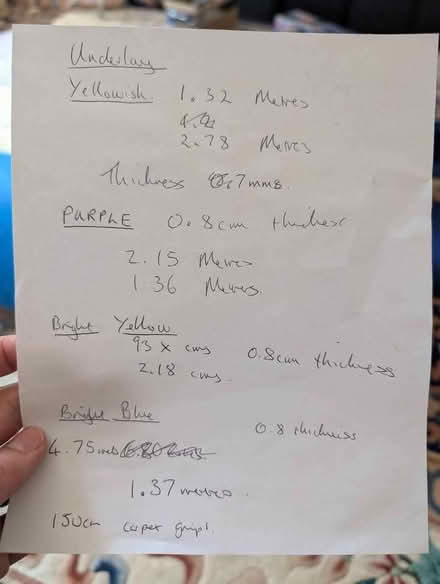 Underlay
Yellowish 1.32 Metres
2.78 Metres
Thickness 7mms.
PURPLE 0.8cm thickness
2.15 Metres
1.36 Metres.
Bright Yellow
93 x cms 0.8cm thickness
2.18 cms.
Bright Blue
0.8 thickness
4.75
1.37 metres.
150cm carpet